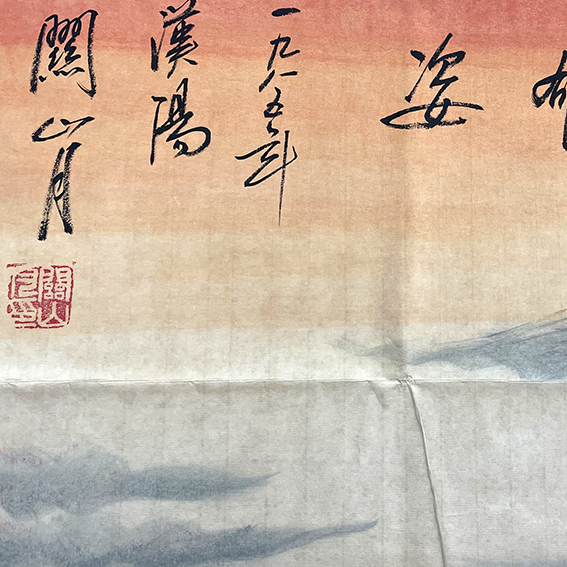 姿
一九八五年
漢陽
關山月
關山月印